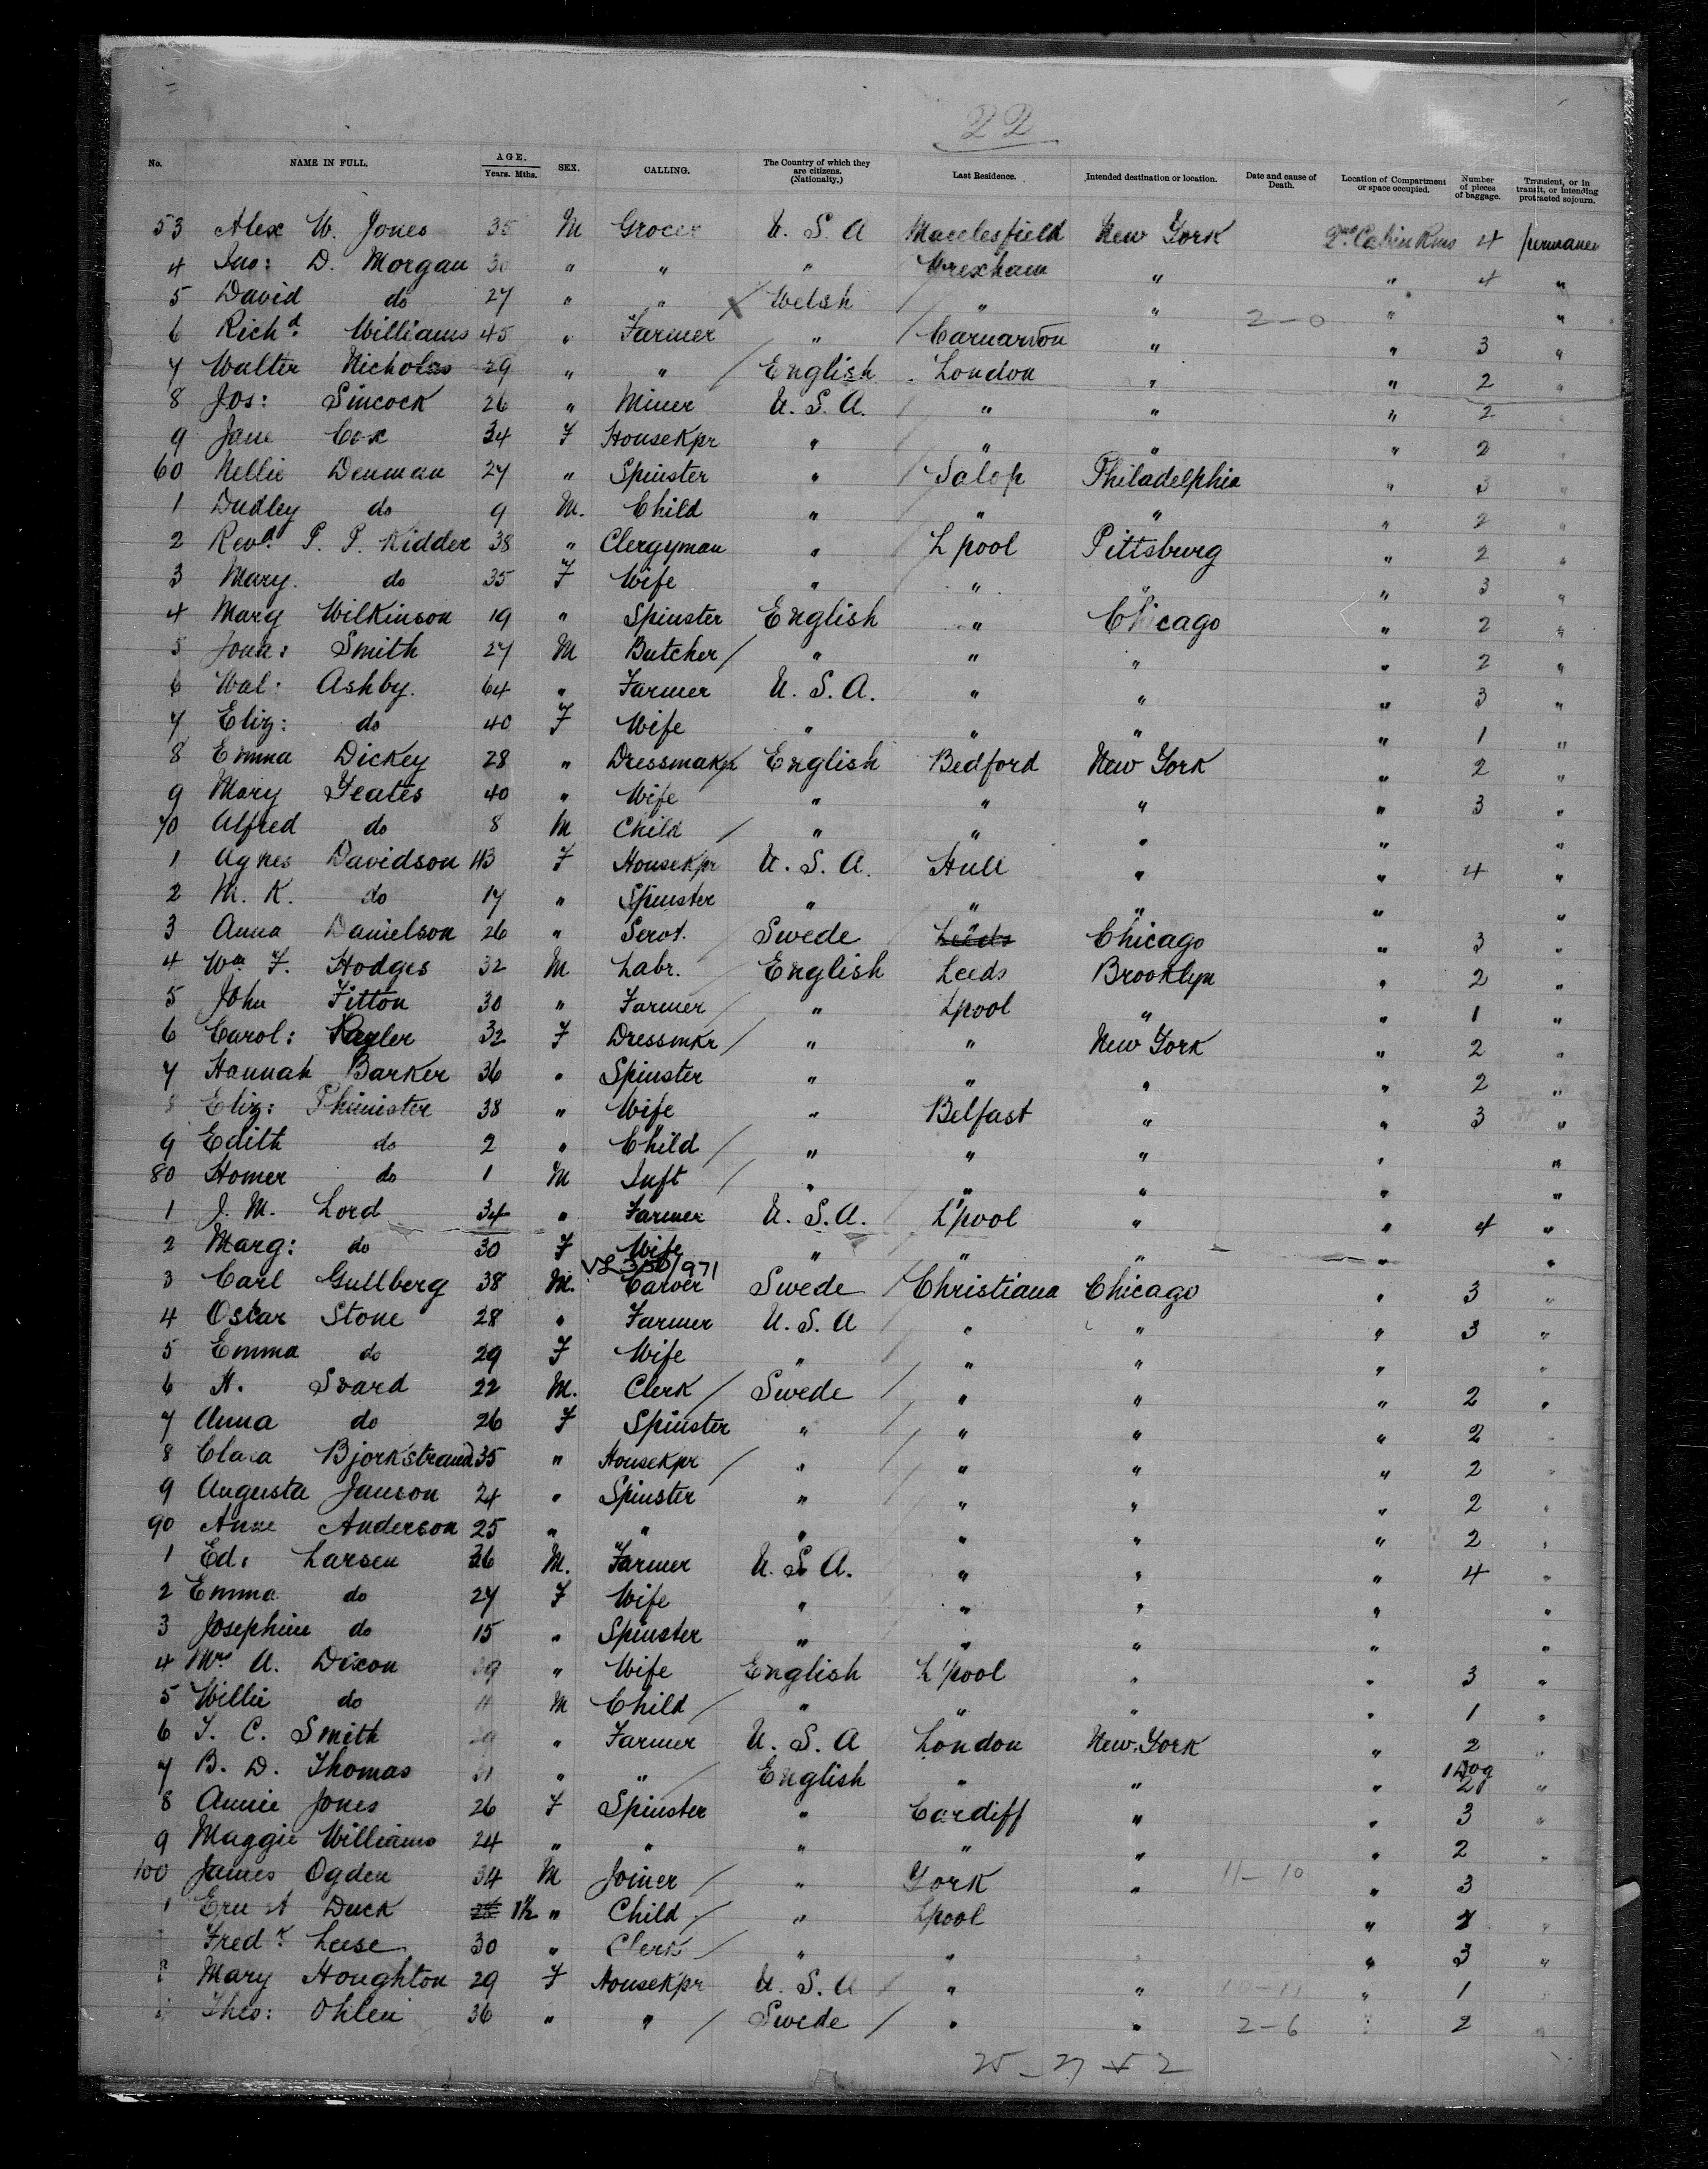 22
No. NAME IN FULL. AGE. Years. Mths. SEX. CALLING. The Country of which they are citizens. (Nationalty.) Last Residence. Intended destination or location. Date and cause of Death. Location of Compartment or space occupied. Number of pieces of baggage. Transient, or in transit, or intending protracted sojourn.
53 Alex W. Jones 35 M Grocer U. S. A Macclesfield New York 2nd Cabin Rms 4
4 Jno: D. Morgan 30 " " " Wrexham " " 4 "
5 David do 27 " " X Welsh " " 2-0 " "
6 Richd. Williams 45 " Farmer " Carnarvon " " 3 "
7 Walter Nicholas 29 " " English London " " 2 "
8 Jos: Sincock 26 " Miner U. S. A. " " " 2
9 Jane Cox 34 F Housekpr " " " " 2
60 Nellie Denman 27 " Spinster " Salop Philadelphia " 3 "
1 Dudley do 9 M. Child " " " " 2 "
2 Revd. P. P. Kidder 38 " Clergyman " L pool Pittsburg " 2 "
3 Mary. do 35 F Wife " " " " 3 "
4 Mary Wilkinson 19 " Spinster English " Chicago " 2 "
5 Jona: Smith 27 M Butcher / " " " " 2 "
6 Wal: Ashby. 64 " Farmer U. S. A. " " " 3 "
7 Eliz: do 40 F Wife " " " " 1 "
8 Emma Dickey 28 " Dressmakr English Bedford New York " 2 "
9 Mary Yeates 40 " Wife " " " " 3 "
70 Alfred do 8 M Child / " " " " "
1 Agnes Davidson 43 F Housekpr U. S. A. Hull " " 4 "
2 M. K. do 17 " Spinster " " " " "
3 Anna Danielson 26 " Servt. Swede Leeds Chicago " 3 "
4 Wm F. Hodges 32 M Labr. English Leeds Brooklyn " 2 "
5 John Fitton 30 " Farmer / " Lpool " " 1 "
6 Carol: 32 F Dressmkr / " " New York " 2 "
7 Hannah Barker 36 " Spinster " " " " 2 "
8 Eliz: Phimister 38 " Wife " Belfast " " 3 "
9 Edith do 2 " Child / " " " " "
80 Homer do 1 M Inft / " " " " "
1 J. M. Lord 34 " Farmer U. S. A. L'pool " " 4 "
2 Marg: do 30 F Wife " " " " "
3 Carl Gullberg 38 M. Carver Swede / Christiana Chicago " 3 "
4 Oscar Stone 28 " Farmer U. S. A / " " " 3 "
5 Emma do 29 F Wife " / " " " "
6 A. Svard 22 M. Clerk / Swede / " " " 2 "
7 Anna do 26 F Spinster " / " " " 2 "
8 Clara Bjorkstrand 35 " Housekpr / " / " " " 2 "
9 Augusta Janson 24 " Spinster " / " " " 2 "
90 Anne Anderson 25 " " " " " " 2 "
1 Ed: Larsen 36 M. Farmer U. S. A. " " " 4 "
2 Emma do 27 F Wife " " " " "
3 Josephine do 15 " Spinster " " " " "
4 Mrs A. Dixon " Wife English L'pool " " 3 "
5 Willie do M Child / " " " " 1 "
6 T. C. Smith " Farmer U. S. A London New York " 2 "
7 B. D. Thomas " " / English " " " 1 Dog 2 "
8 Annie Jones 26 F Spinster " Cardiff " " 3 "
9 Maggie Williams 24 " " " " " " 2 "
100 James Ogden 34 M Joiner / " York " 11-10 " 3
1 Ernst Duck 1½ " Child / " Lpool " "
Fredk Leese 30 " Clerk / " " " " 3 "
Mary Houghton 29 F Housek'pr U. S. A / " " 10-11 " 1
Theo: Ohlen 36 " " / Swede / " " 2-6 2